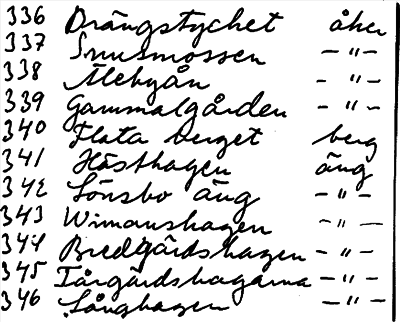 336 Drängstycket åker
337 Snusmossen - " -
338 Älebyån - " -
339 Gammalgården - " -
340 Flata berget berg
341 Hästhagen äng
342 Sörsbo äng - " -
343 Wimanshagen - " -
344 Bredgårdshagen - " -
345 Tårgårdshagarna - " -
346 Långhagen - " -